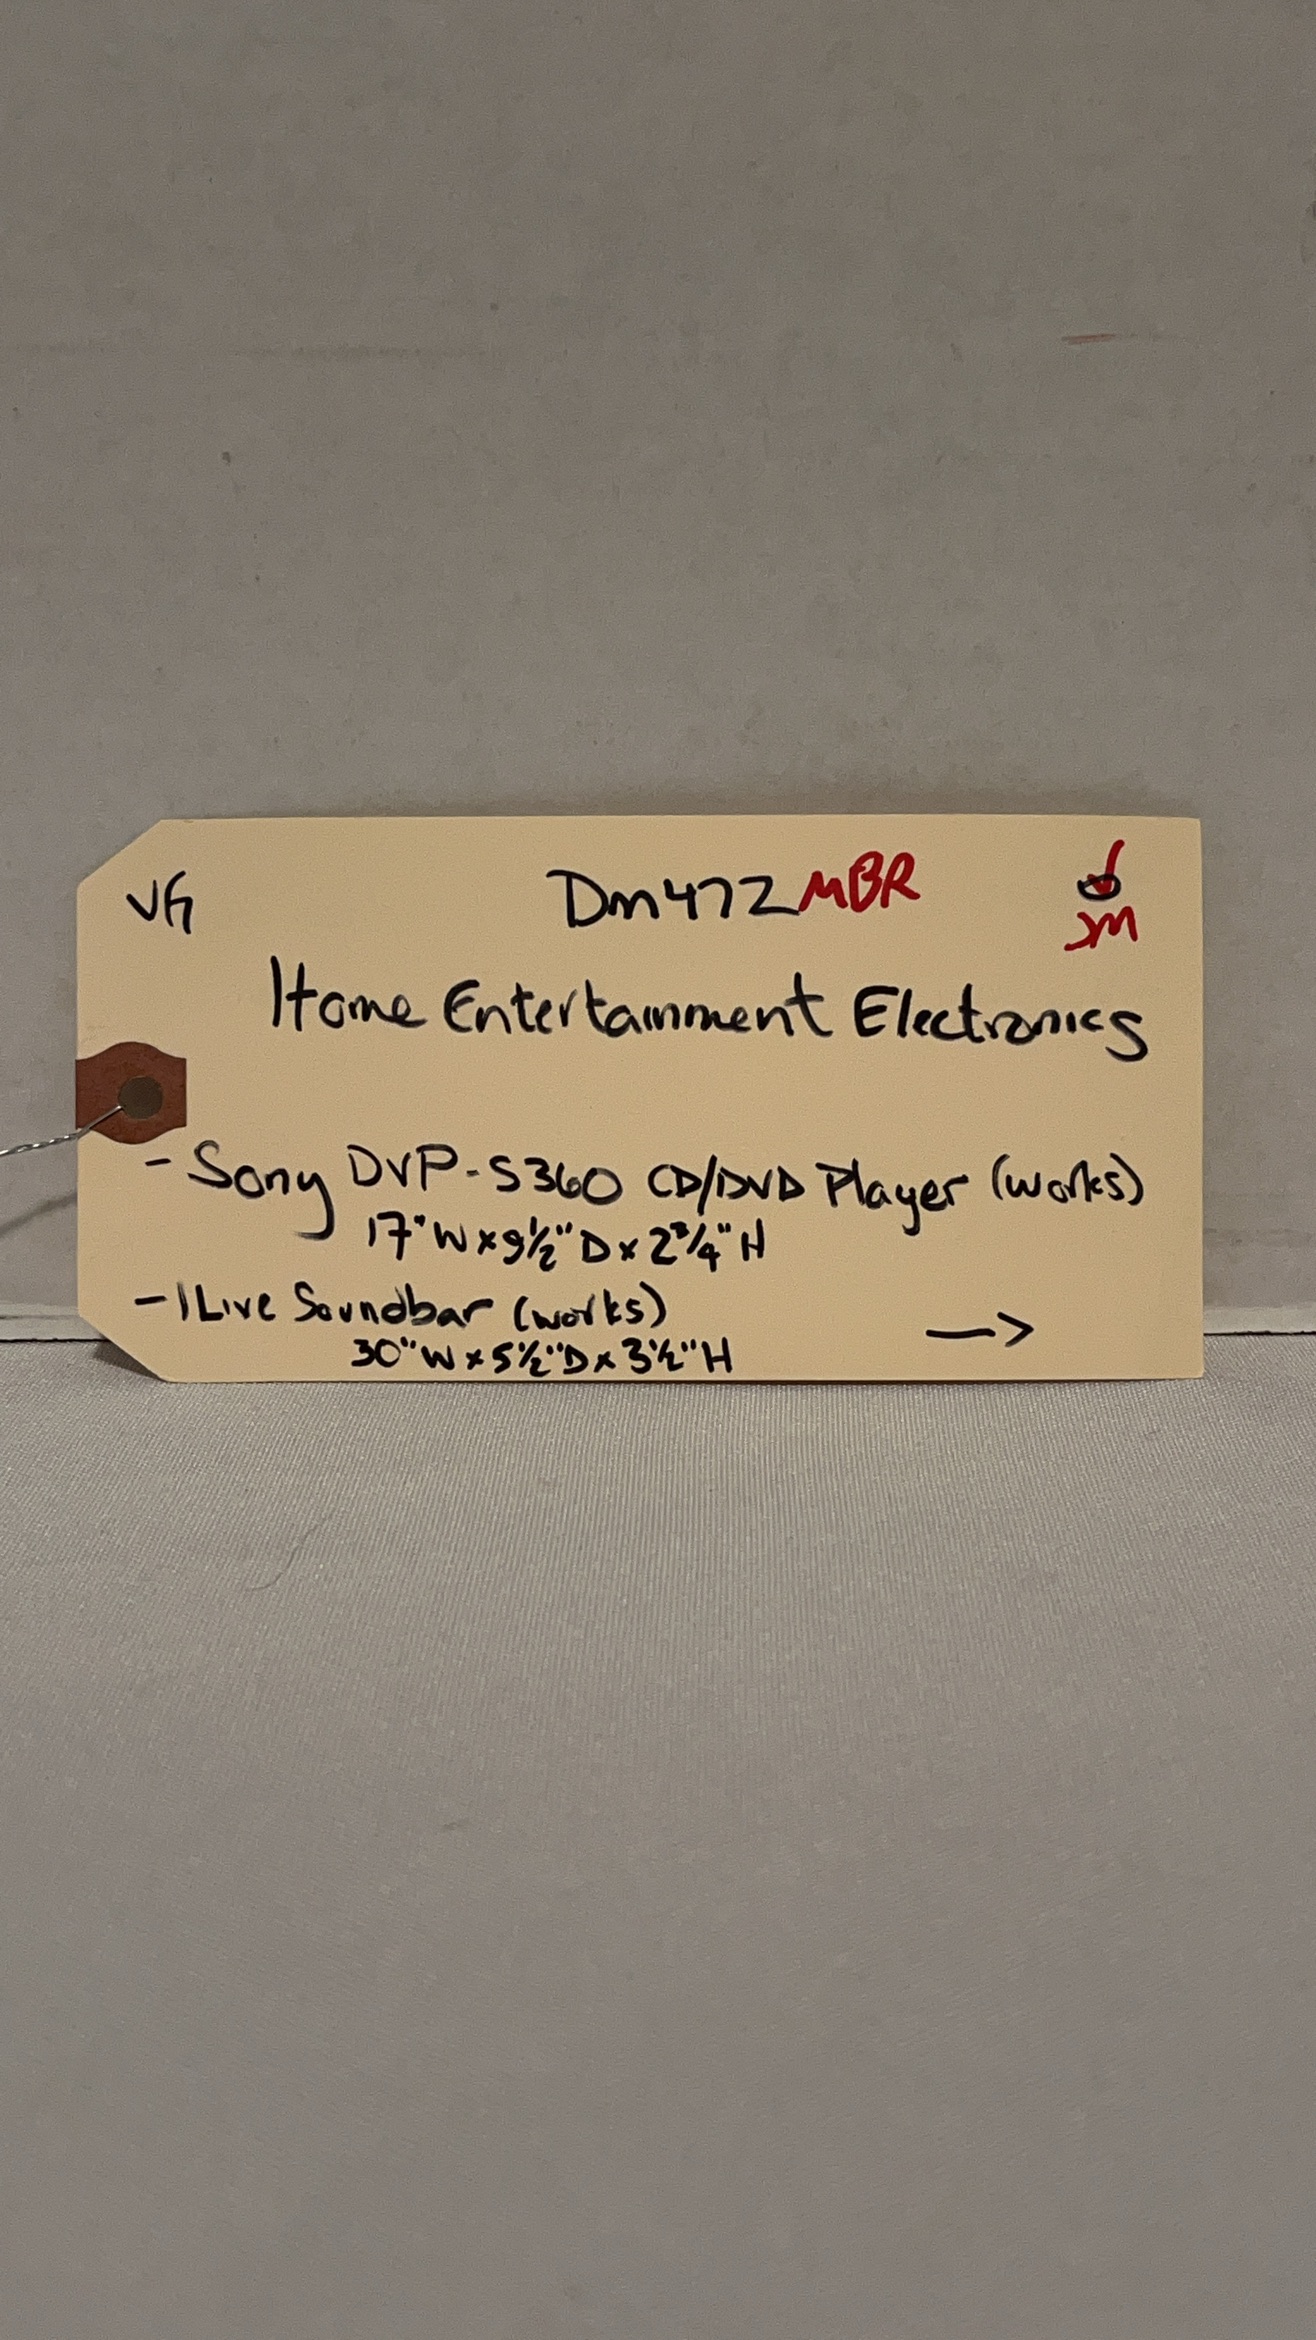 VG Dm472 MBR
JM
Home Entertainment Electronics
- Sony DVP-S360 CD/DVD Player (works)
17"W x 9½"D x 2¾"H
- ILive Soundbar (works)
30"W x 5½"D x 3½"H